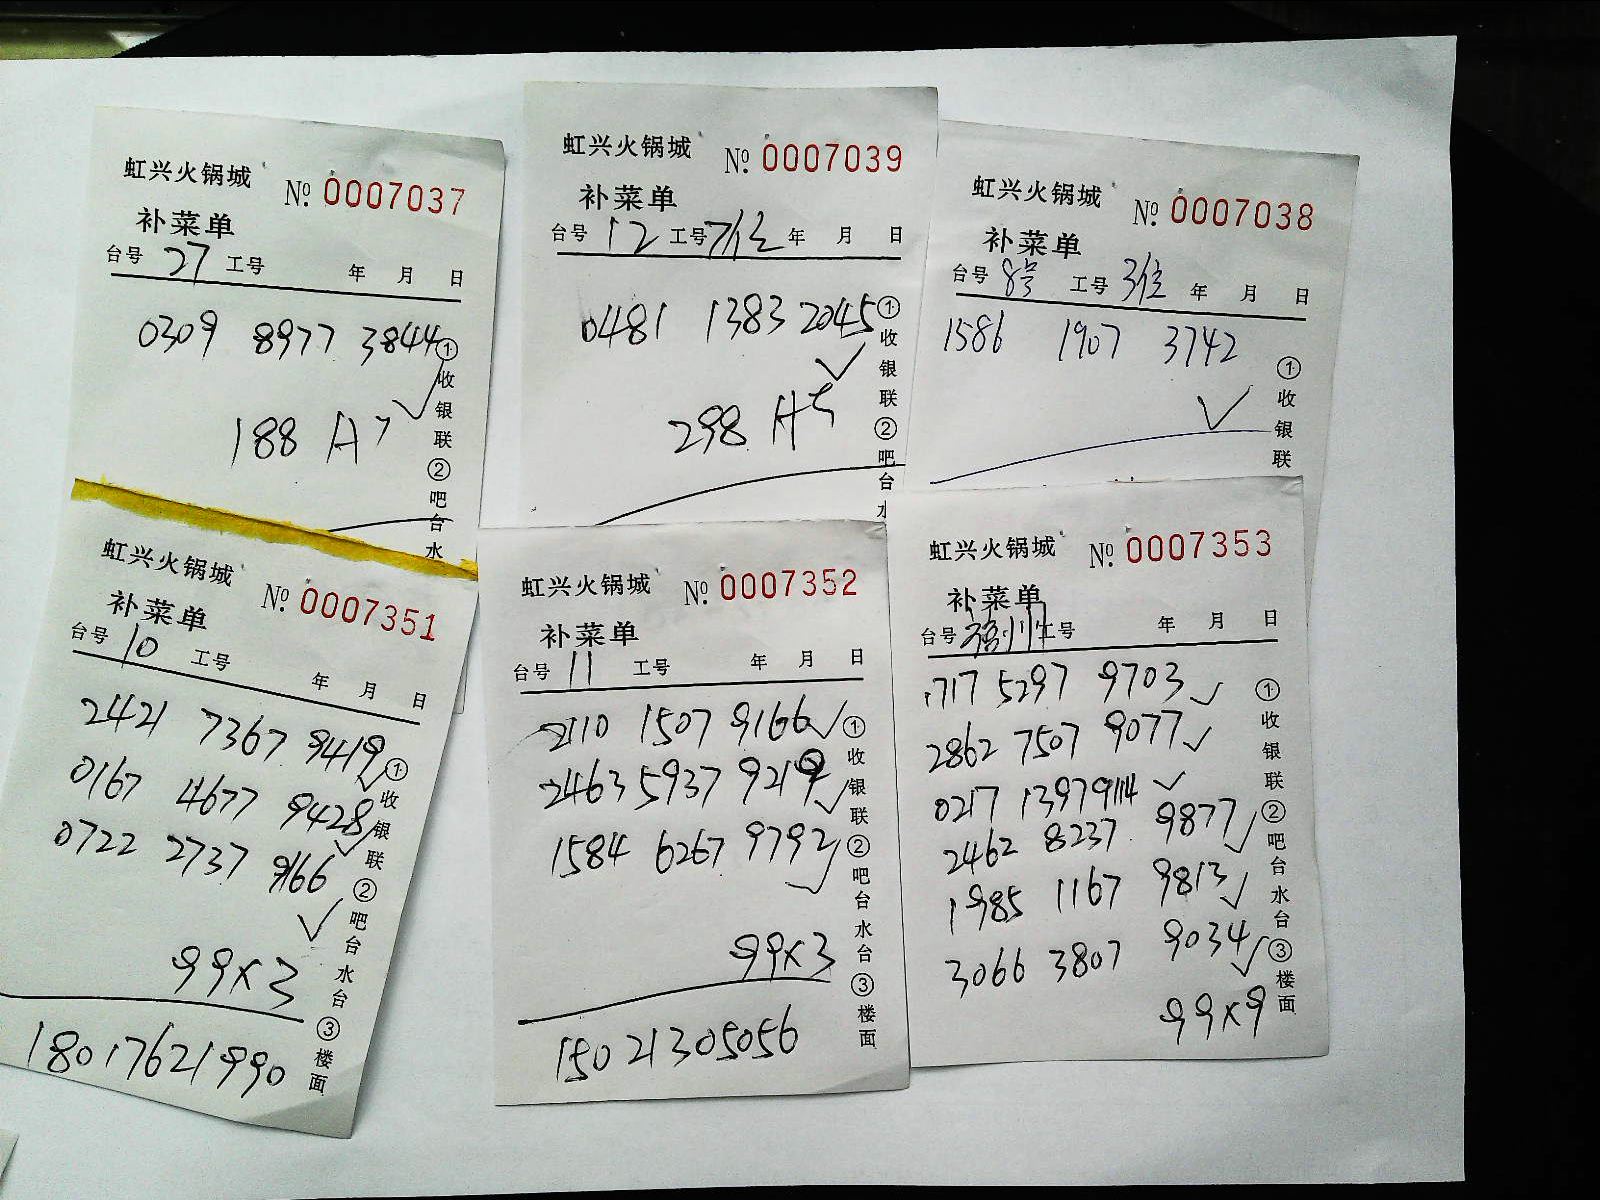 虹兴火锅城 №. 0007037
补菜单
台号 27 工号 年 月 日
0309 8977 3844
188 A7
①收银联②吧台水
虹兴火锅城 №. 0007039
补菜单
台号 12 工号 7位 年 月 日
0481 1383 2045
✓
298 A5
①收银联②吧台水
虹兴火锅城 №. 0007038
补菜单
台号 8号 工号 3位 年 月 日
1586 1907 3742
✓
①收银联
虹兴火锅城 №. 0007351
补菜单
台号 10 工号 年 月 日
2421 7367 9419 ✓
0167 4677 9428 ✓
0722 2737 9166
✓
99×3
18017621990
①收银联②吧台水台③楼面
虹兴火锅城 №. 0007352
补菜单
台号 11 工号 年 月 日
2110 1507 9166 ✓
2463 5937 9219 ✓
1584 6267 9792 ✓
99×3
15021305056
①收银联②吧台水台③楼面
虹兴火锅城 №. 0007353
补菜单
台号 工号 年 月 日
1717 5297 9703 ✓
2862 7507 9077 ✓
0217 1397 9114 ✓
2462 8237 9877 ✓
1985 1167 9813 ✓
3066 3807 9034 ✓
99×9
①收银联②吧台水台③楼面